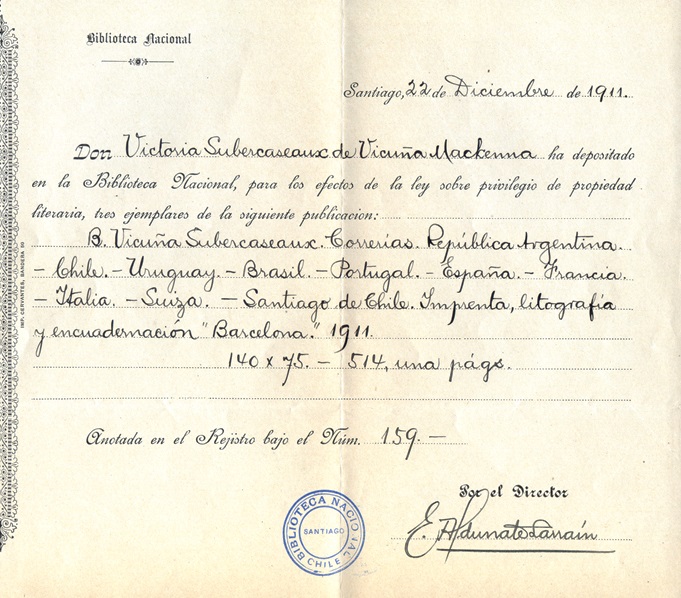 Biblioteca Nacional
Santiago, 22 de Diciembre de 1911.
Don Victoria Subercaseaux de Vicuña Mackenna ha depositado
en la Biblioteca Nacional, para los efectos de la ley sobre privilegio de propiedad
literaria, tres ejemplares de la siguiente publicacion:
B. Vicuña Subercaseaux. Correrías. República Argentina.
– Chile. – Uruguay. – Brasil. – Portugal. – España. – Francia.
– Italia. – Suiza. – Santiago de Chile. Imprenta, litografía
y encuadernación "Barcelona." 1911.
140 x 75. – 514, una págs.
Anotada en el Rejistro bajo el Núm. 159. –
Por el Director
E. Aldunate Larraín
BIBLIOTECA NACIONAL
SANTIAGO
CHILE
IMP. CERVANTES, BANDERA 50